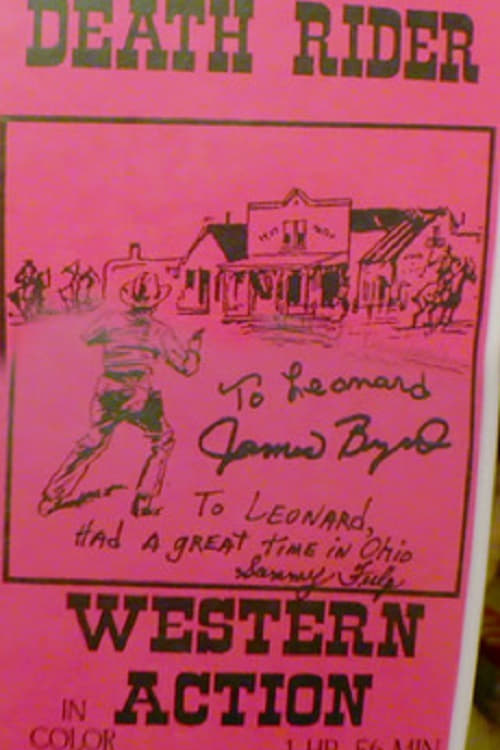 DEATH RIDER
To Leonard
James Byrd
To LEONARD,
HAd A gREAT TimE iN Ohio
Sammy Fulp
WESTERN
ACTION
IN
COLOR
1 HR. 56 MIN